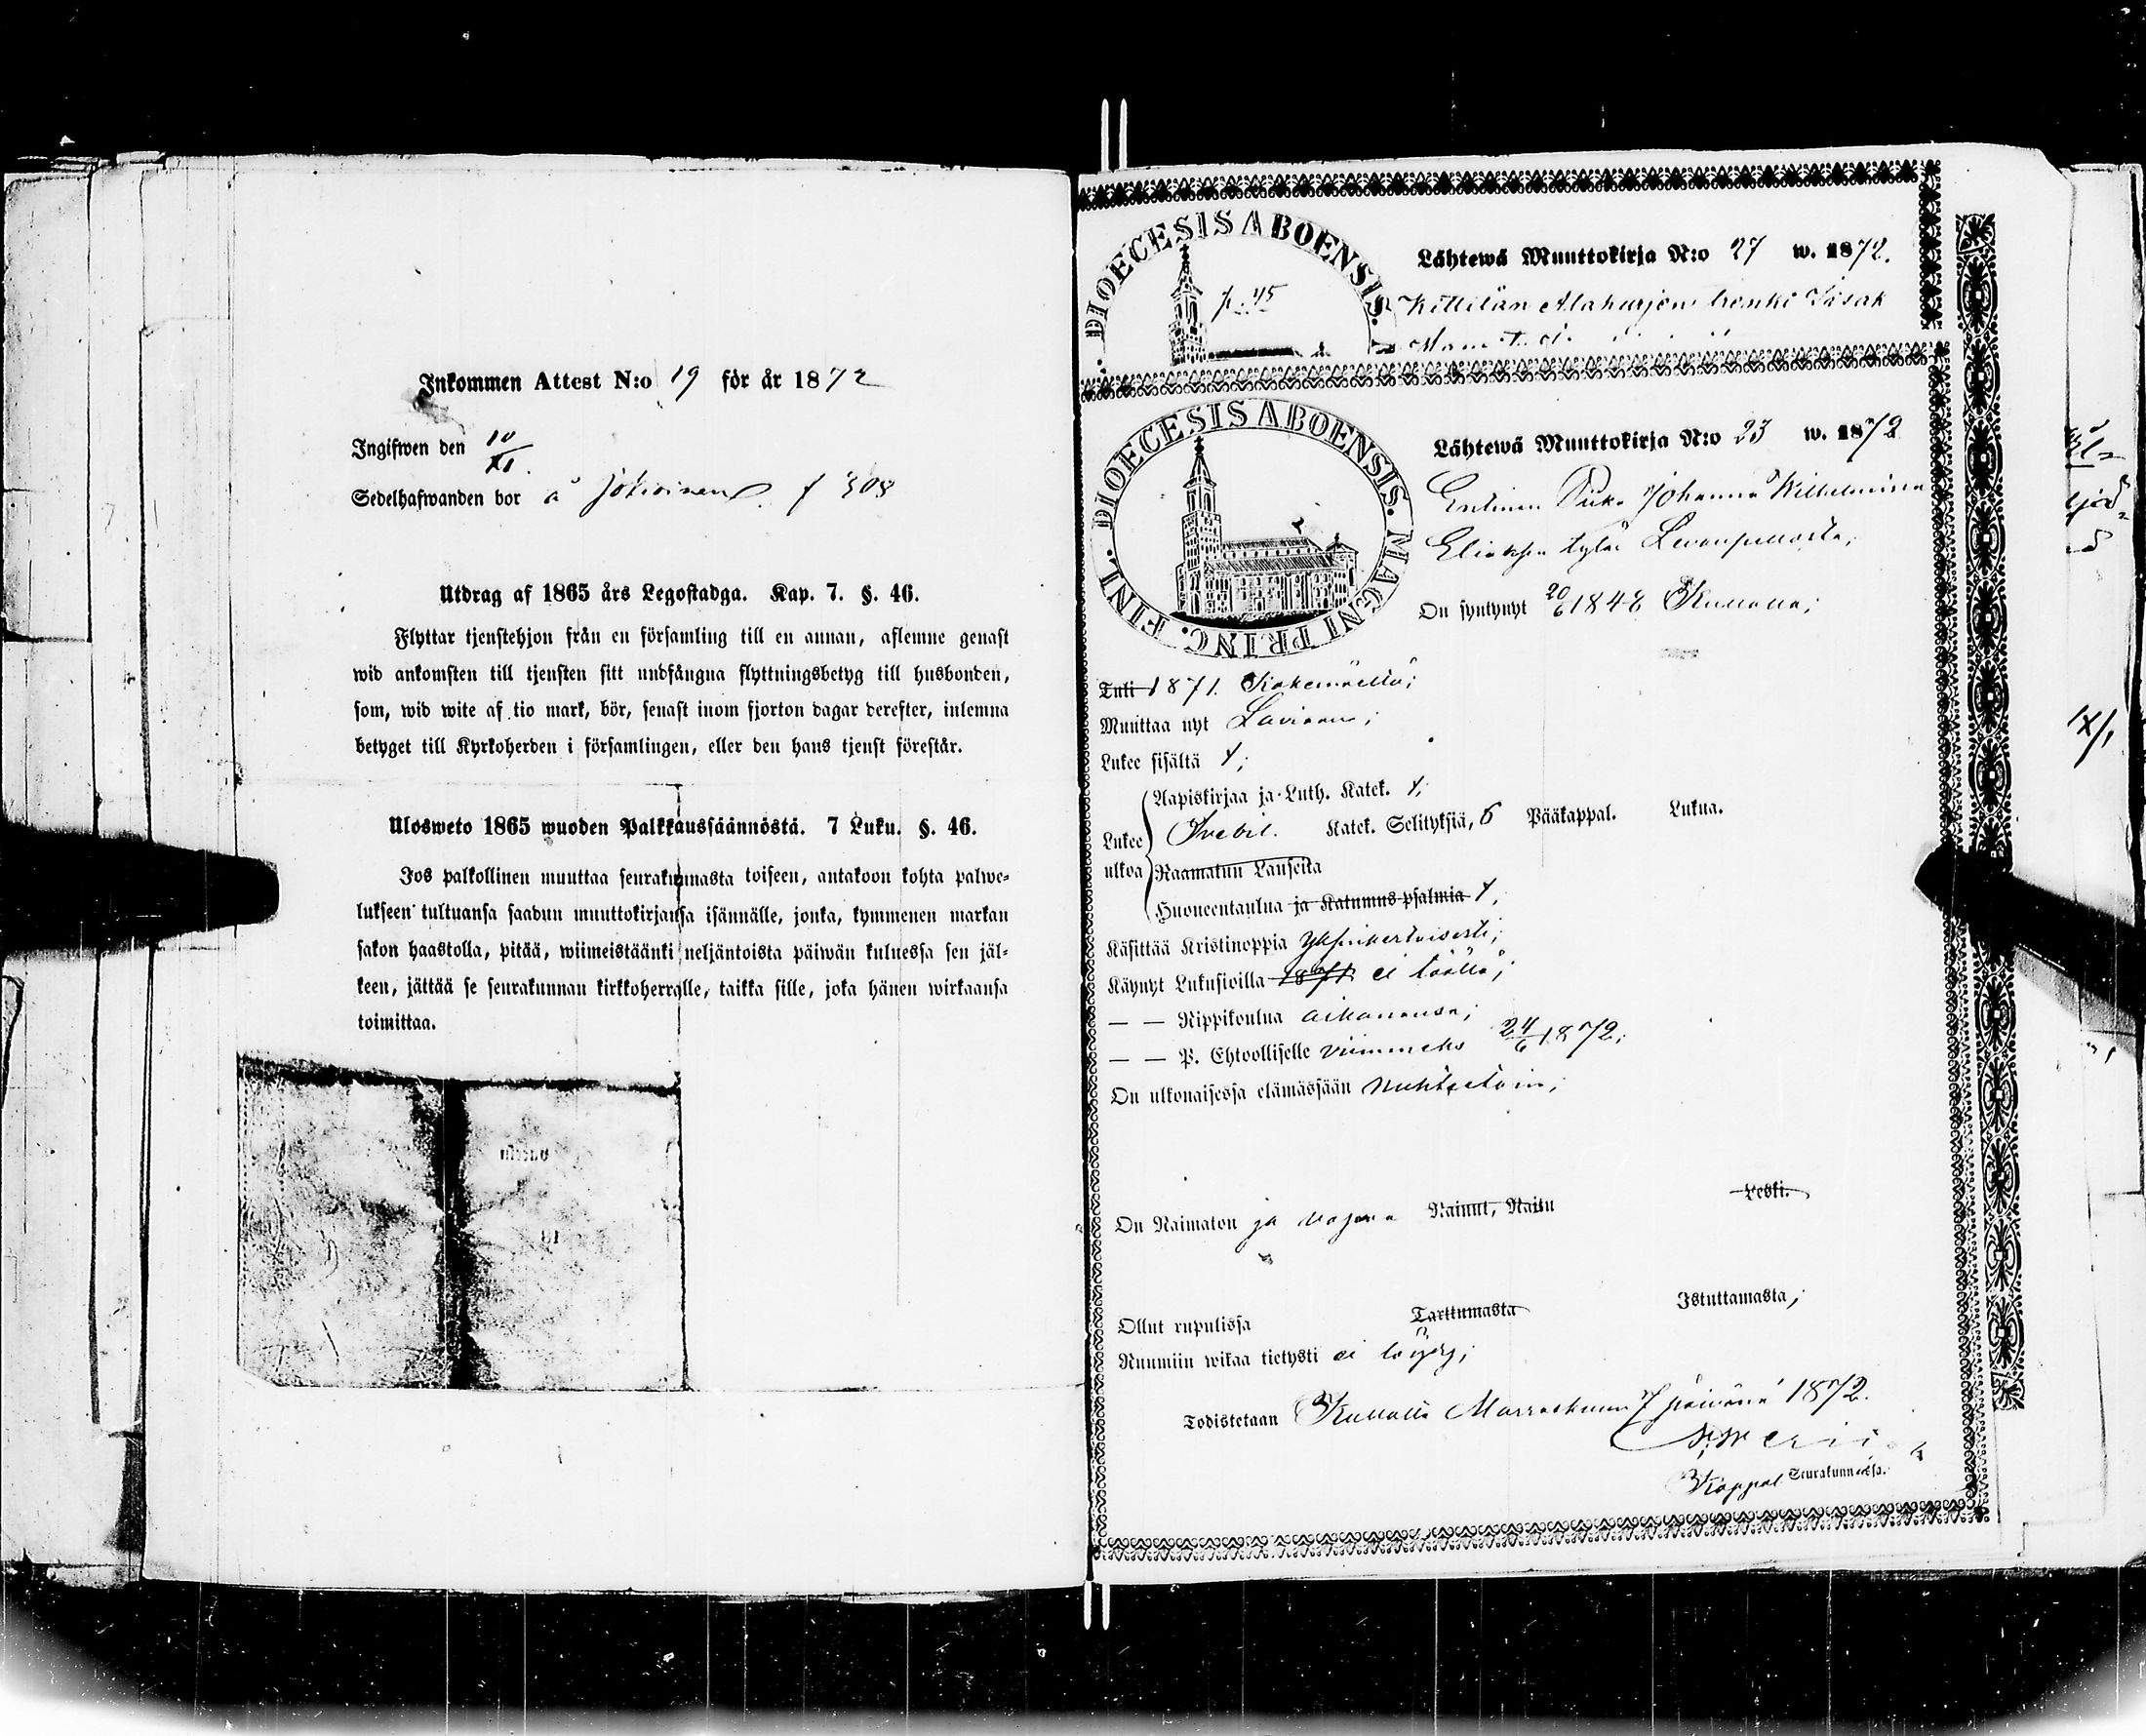 Inkommen Attest N:o 19 för år 1872
Ingifwen den 10/XI.
Sedelhafwanden bor å Jokioinens f 308
Utdrag af 1865 års Legostadga. Kap. 7. §. 46.
Flyttar tjenstehjon från en församling till en annan, aflemne genast
wid ankomsten till tjensten sitt undfångna flyttningsbetyg till husbonden,
som, wid wite af tio mark, bör, senast inom fjorton dagar derefter, inlemna
betyget till Kyrkoherden i församlingen, eller den hans tjenst förestår.
Ulosweto 1865 wuoden Palkkaussäännöstä. 7 Luku. §. 46.
Jos palkollinen muuttaa seurakunnasta toiseen, antakoon kohta palwe=
lukseen tultuansa saadun muuttokirjansa isännälle, jonka, kymmenen markan
sakon haastolla, pitää, wiimeistäänki neljäntoista päiwän kuluessa sen jäl=
keen, jättää se seurakunnan kirkkoherralle, taikka sille, joka hänen wirkaansa
toimittaa.
DIOECESIS ABOENSIS.
p. 45
Lähtewä Muuttokirja N:o 27 w. 1872.
Kittilän Alahurjen renki Isak
DIOECESIS ABOENSIS. MAGNI PRINC. FINL.
Lähtewä Muuttokirja N:o 23 w. 1872
Entinen Piika Johanna Wilhelmina
Eliaksen tytär
On syntynyt 20/6 1848
Tuli 1871. Kokemäeltä;
Muuttaa nyt Laviaan;
Lukee sisältä 1;
Lukee ulkoa
Aapiskirjaa ja Luth. Katek. 1;
Svebil. Katek. Selityksiä, 6 Pääkappal. Lukua.
Raamatun Lauseita
Huoneentaulua ja Katumus-psalmia 1,
Käsittää Kristinoppia yksinkertaisesti;
Käynyt Lukusioilla 1871 ei täällä;
— — Rippikoulua aikanansa;
— — P. Ehtoolliselle viimmeks 24/6 1872;
On ulkonaisessa elämässään nuhteetoin;
On Naimaton ja vapaa Nainut, Naitu Leski.
Ollut rupulissa Tarttumasta Istuttamasta,
Ruumiin wikaa tietysti ei löydy;
Todistetaan Marraskuun 7 päivänä 1872.
Kappal Seurakunnassa.